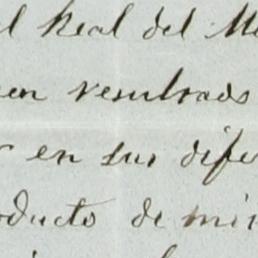 l Real del M
en resultado
r en sus dife
oducto de min